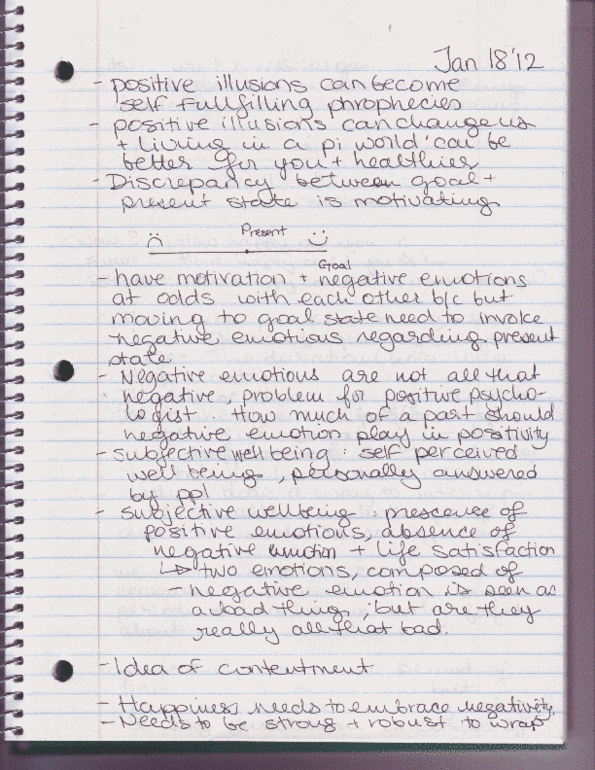 Jan 18'12
- positive illusions can become
self fullfilling phrophecies
- positive illusions can change us
+ living in a pi world can be
better for you + healthier
- Discrepancy between goal +
present state is motivating
Present
Goal
- have motivation + negative emotions
at odds with each other b/c but
moving to goal state need to invoke
negative emotions regarding present
state
- Negative emotions are not all that
negative problem for positive psycho-
logist How much of a part should
negative emotion play in positivity
- subjective well being : self perceived
well beings, personally answered
by ppl
- subjective wellbeing : prescence of
positive emotions, absence of
negative emotion + life satisfaction
↳ two emotions, composed of
- negative emotion is seen as
a bad thing, but are they
really all that bad.
- Idea of contentment
- Happiness needs to embrace negativity
- Needs to be strong + robust to wrap